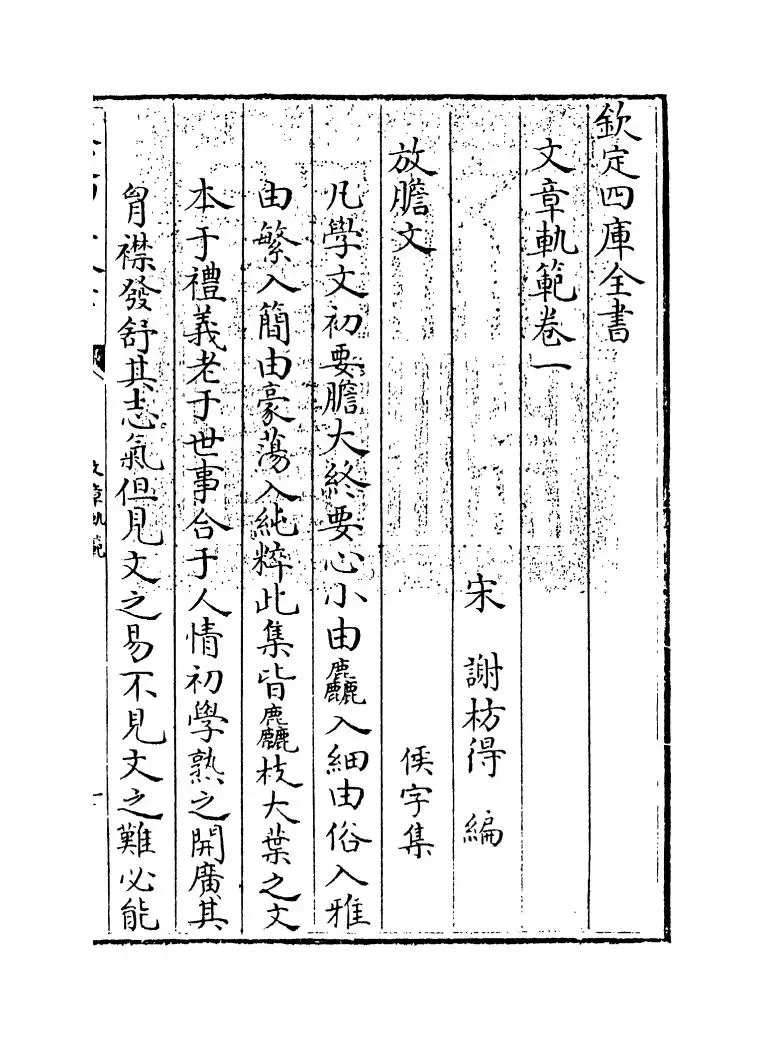 欽定四庫全書
文章軌範卷一
宋 謝枋得 編
放膽文 侯字集
凡學文初要膽大終要心小由麤入細由俗入雅
由繁入簡由豪蕩入純粹此集皆麤枝大葉之文
本于禮義老于世事合于人情初學熟之開廣其
胷襟發舒其志氣但見文之易不見文之難必能
文章軌範
一